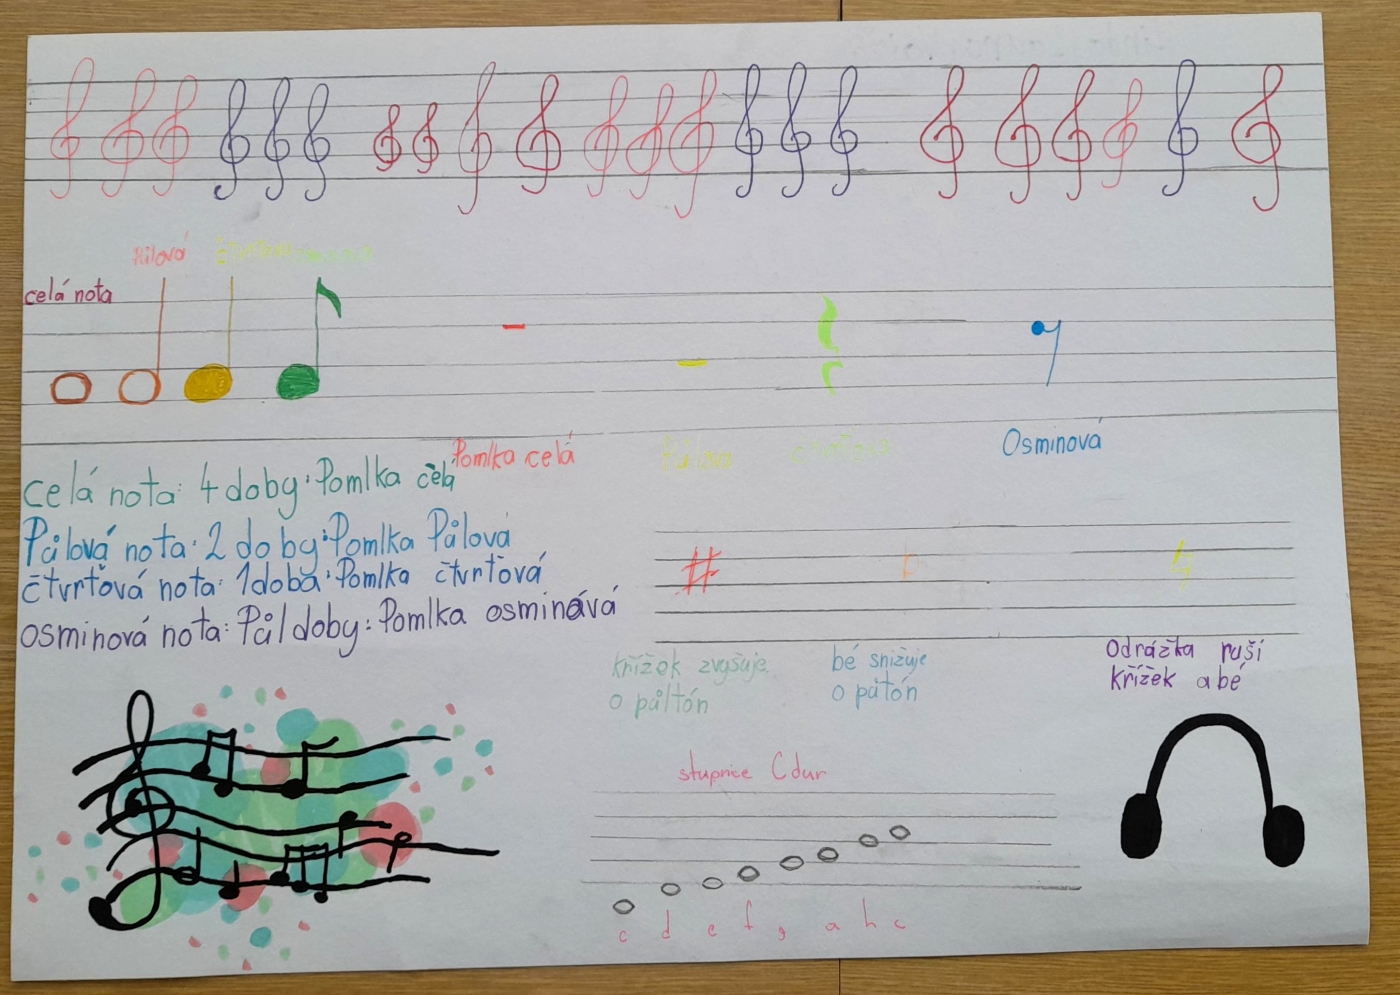 Půlová
celá nota
Pomlka celá
Půlová
čtvrťová
Osminová
celá nota: 4 doby: Pomlka celá
Půlová nota: 2 doby: Pomlka Půlová
čtvrťová nota: 1doba: Pomlka čtvrťová
osminová nota: Půl doby: Pomlka osminává
křížek zvyšuje
o půltón
bé snižuje
o pátón
odrážka ruší
křížek a bé
stupnice C dur
c d e f g a h c